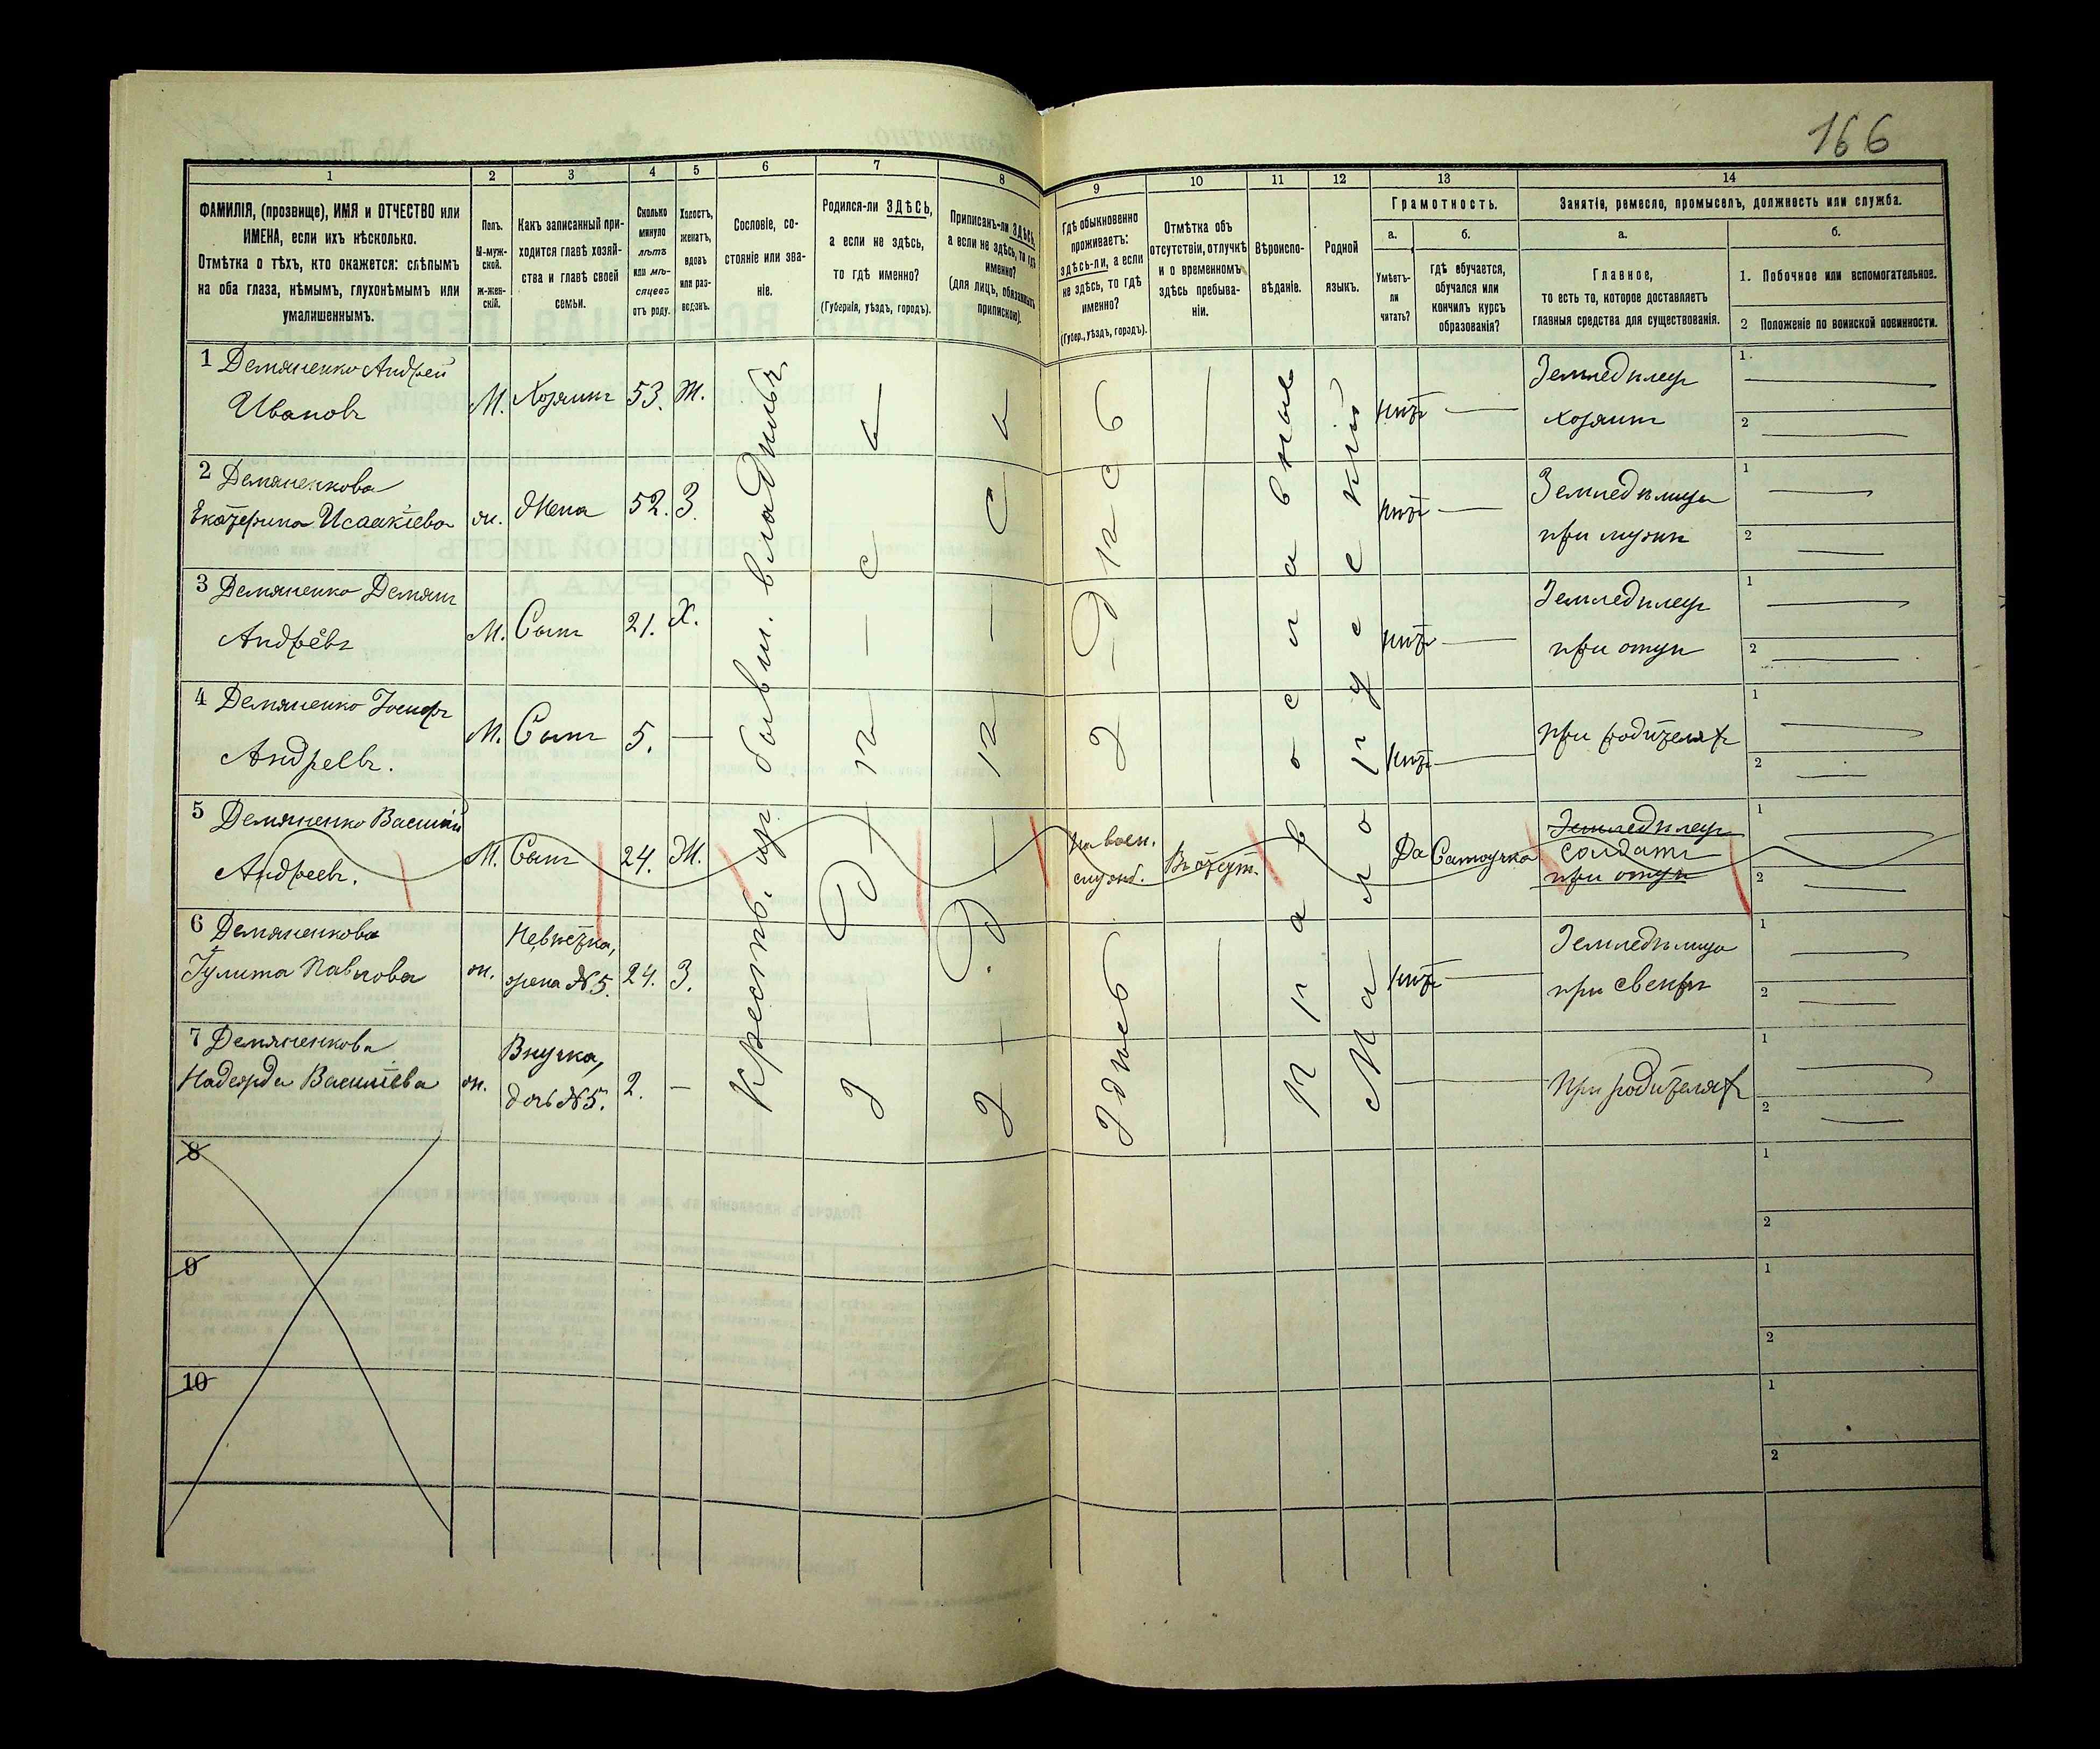 166
1 2 3 4 5 6 7 8 9 10 11 12 13 14
ФАМИЛІЯ, (прозвище), ИМЯ и ОТЧЕСТВО или
ИМЕНА, если ихъ нѣсколько.
Отмѣтка о тѣхъ, кто окажется: слѣпымъ
на оба глаза, нѣмымъ, глухонѣмымъ или
умалишеннымъ.
Полъ.
М-муж-
ской.
Ж-жен-
скій.
Какъ записанный при-
ходится главѣ хозяй-
ства и главѣ своей
семьи.
Сколько
минуло
лѣтъ
или мѣ-
сяцевъ
отъ роду.
Холостъ,
женатъ,
вдовъ
или раз-
веденъ.
Сословіе, со-
стояніе или зва-
ніе.
Родился-ли ЗДѢСЬ,
а если не здѣсь,
то гдѣ именно?
(Губернія, уѣздъ, городъ).
Приписанъ-ли ЗДѢСЬ,
а если не здѣсь, то гдѣ
именно?
(для лицъ, обязанныхъ
припискою).
Гдѣ обыкновенно
проживаетъ:
здѣсь-ли, а если
не здѣсь, то гдѣ
именно?
(Губер., уѣздъ, городъ).
Отмѣтка объ
отсутствіи, отлучкѣ
и о временномъ
здѣсь пребыва-
ніи.
Вѣроиспо-
вѣданіе.
Родной
языкъ.
Грамотность.
а.
Умѣетъ-
ли
читать?
б.
гдѣ обучается,
обучался или
кончилъ курсъ
образованія?
Занятіе, ремесло, промыселъ, должность или служба.
а.
Главное,
то есть то, которое доставляетъ
главныя средства для существованія.
б.
1. Побочное или вспомогательное.
2 Положеніе по воинской повинности.
1 Демяненко Андрей
Ивановъ
М. Хозяинъ 53. Ж.
Крестьян. бывш. владѣльч.
Здѣсь
Здѣсь
Здѣсь
Православный
Малорусскій
нѣтъ
Земледѣлецъ
хозяинъ
1
2
2 Демяненкова
Екатерина Исаакіева
ж. Жена 52. З.
нѣтъ
Земледѣлица
при мужѣ
1
2
3 Демяненко Демянъ
Андрѣевъ
М. Сынъ 21. Х.
нѣтъ
Земледѣлецъ
при отцѣ
1
2
4 Демяненко Іосифъ
Андреевъ.
М. Сынъ 5.
нѣтъ
при родителяхъ
1
2
5 Демяненко Василій
Андреевъ.
М. Сынъ 24. Ж.
на воен.
служб.
Въ отсут.
Да Самоучка
Земледѣлецъ
солдатъ
при отцѣ
1
2
6 Демяненкова
Іулита Павлова
ж.
Невѣстка,
жена №5.
24. З.
Здѣсь
нѣтъ
Земледѣлица
при свекрѣ
1
2
7 Демяненкова
Надежда Васильева
ж.
Внучка,
дочь №5.
2.
При родителяхъ
1
2
8
1
2
9
1
2
10
1
2